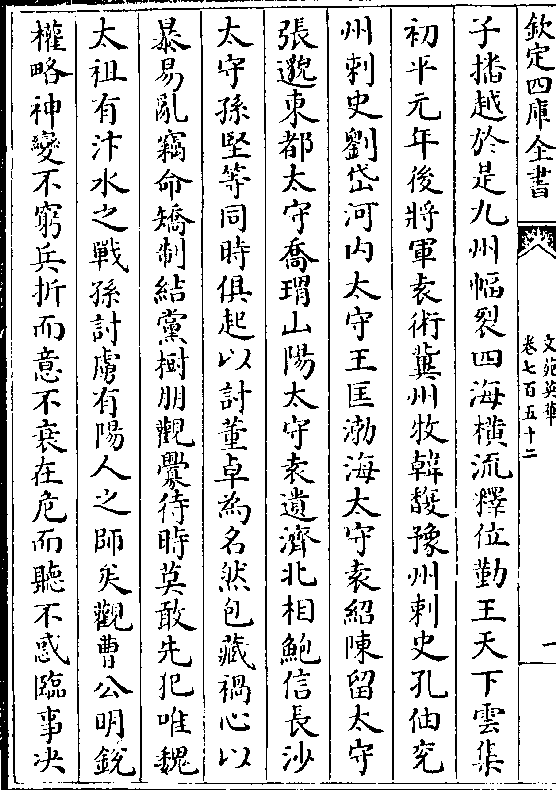 欽定四庫全書
文苑英華
卷七百五十二
一
子播越於是九州幅裂四海橫流釋位勤王天下雲集
初平元年後將軍袁術冀州牧韓馥豫州刺史孔伷兖
州刺史劉岱河内太守王匡渤海太守袁紹陳留太守
張邈東都太守喬瑁山陽太守袁遺濟北相鮑信長沙
太守孫堅等同時俱起以討董卓為名然包藏禍心以
暴易亂竊命矯制結黨樹朋觀釁待時莫敢先犯唯魏
太祖有汴水之戰孫討虜有陽人之師矣觀曹公明銳
權略神變不窮兵折而意不衰在危而聽不惑臨事决